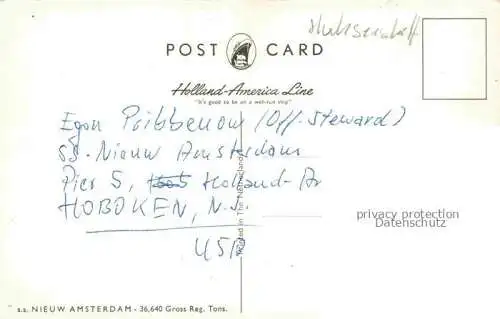 POST CARD
Holland-America Line
"It's good to be on a well-run ship"
Egon Pribbenow (Off. Steward)
SS. Nieuw Amsterdam
Pier 5, Holland-Am
HOBOKEN, N.J.
USA
Printed in The Netherlands
privacy protection
Datenschutz
s.s. NIEUW AMSTERDAM - 36,640 Gross Reg. Tons.